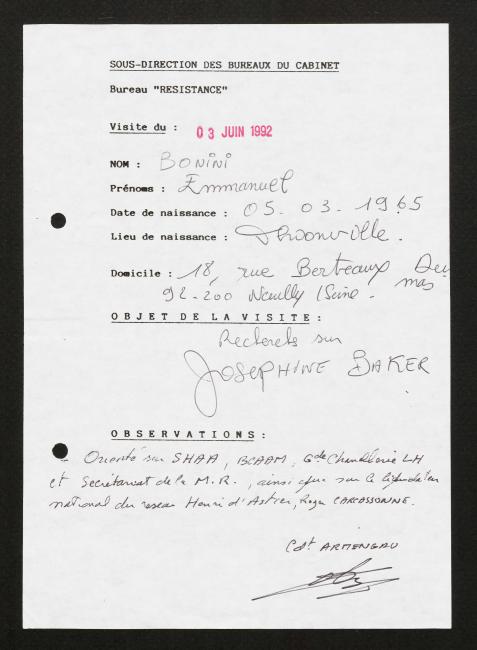 SOUS-DIRECTION DES BUREAUX DU CABINET
Bureau "RESISTANCE"
Visite du : 03 JUIN 1992
NOM : BONINI
Prénoms : Emmanuel
Date de naissance : 05. 03. 1965
Lieu de naissance : Thionville.
Domicile : 18, rue Berteaux Du
mas
92-200 Neuilly /Seine.
OBJET DE LA VISITE :
Recherche sur
JOSEPHINE BAKER
OBSERVATIONS :
Orienté sur SHAA, BCAAM, Gde Chancellerie LH
et Secrétariat de la M.R., ainsi que sur le liquidateur
national du reseau Henri d'Astier, Roger CARCASSONNE.
Cdt ARMENGAU